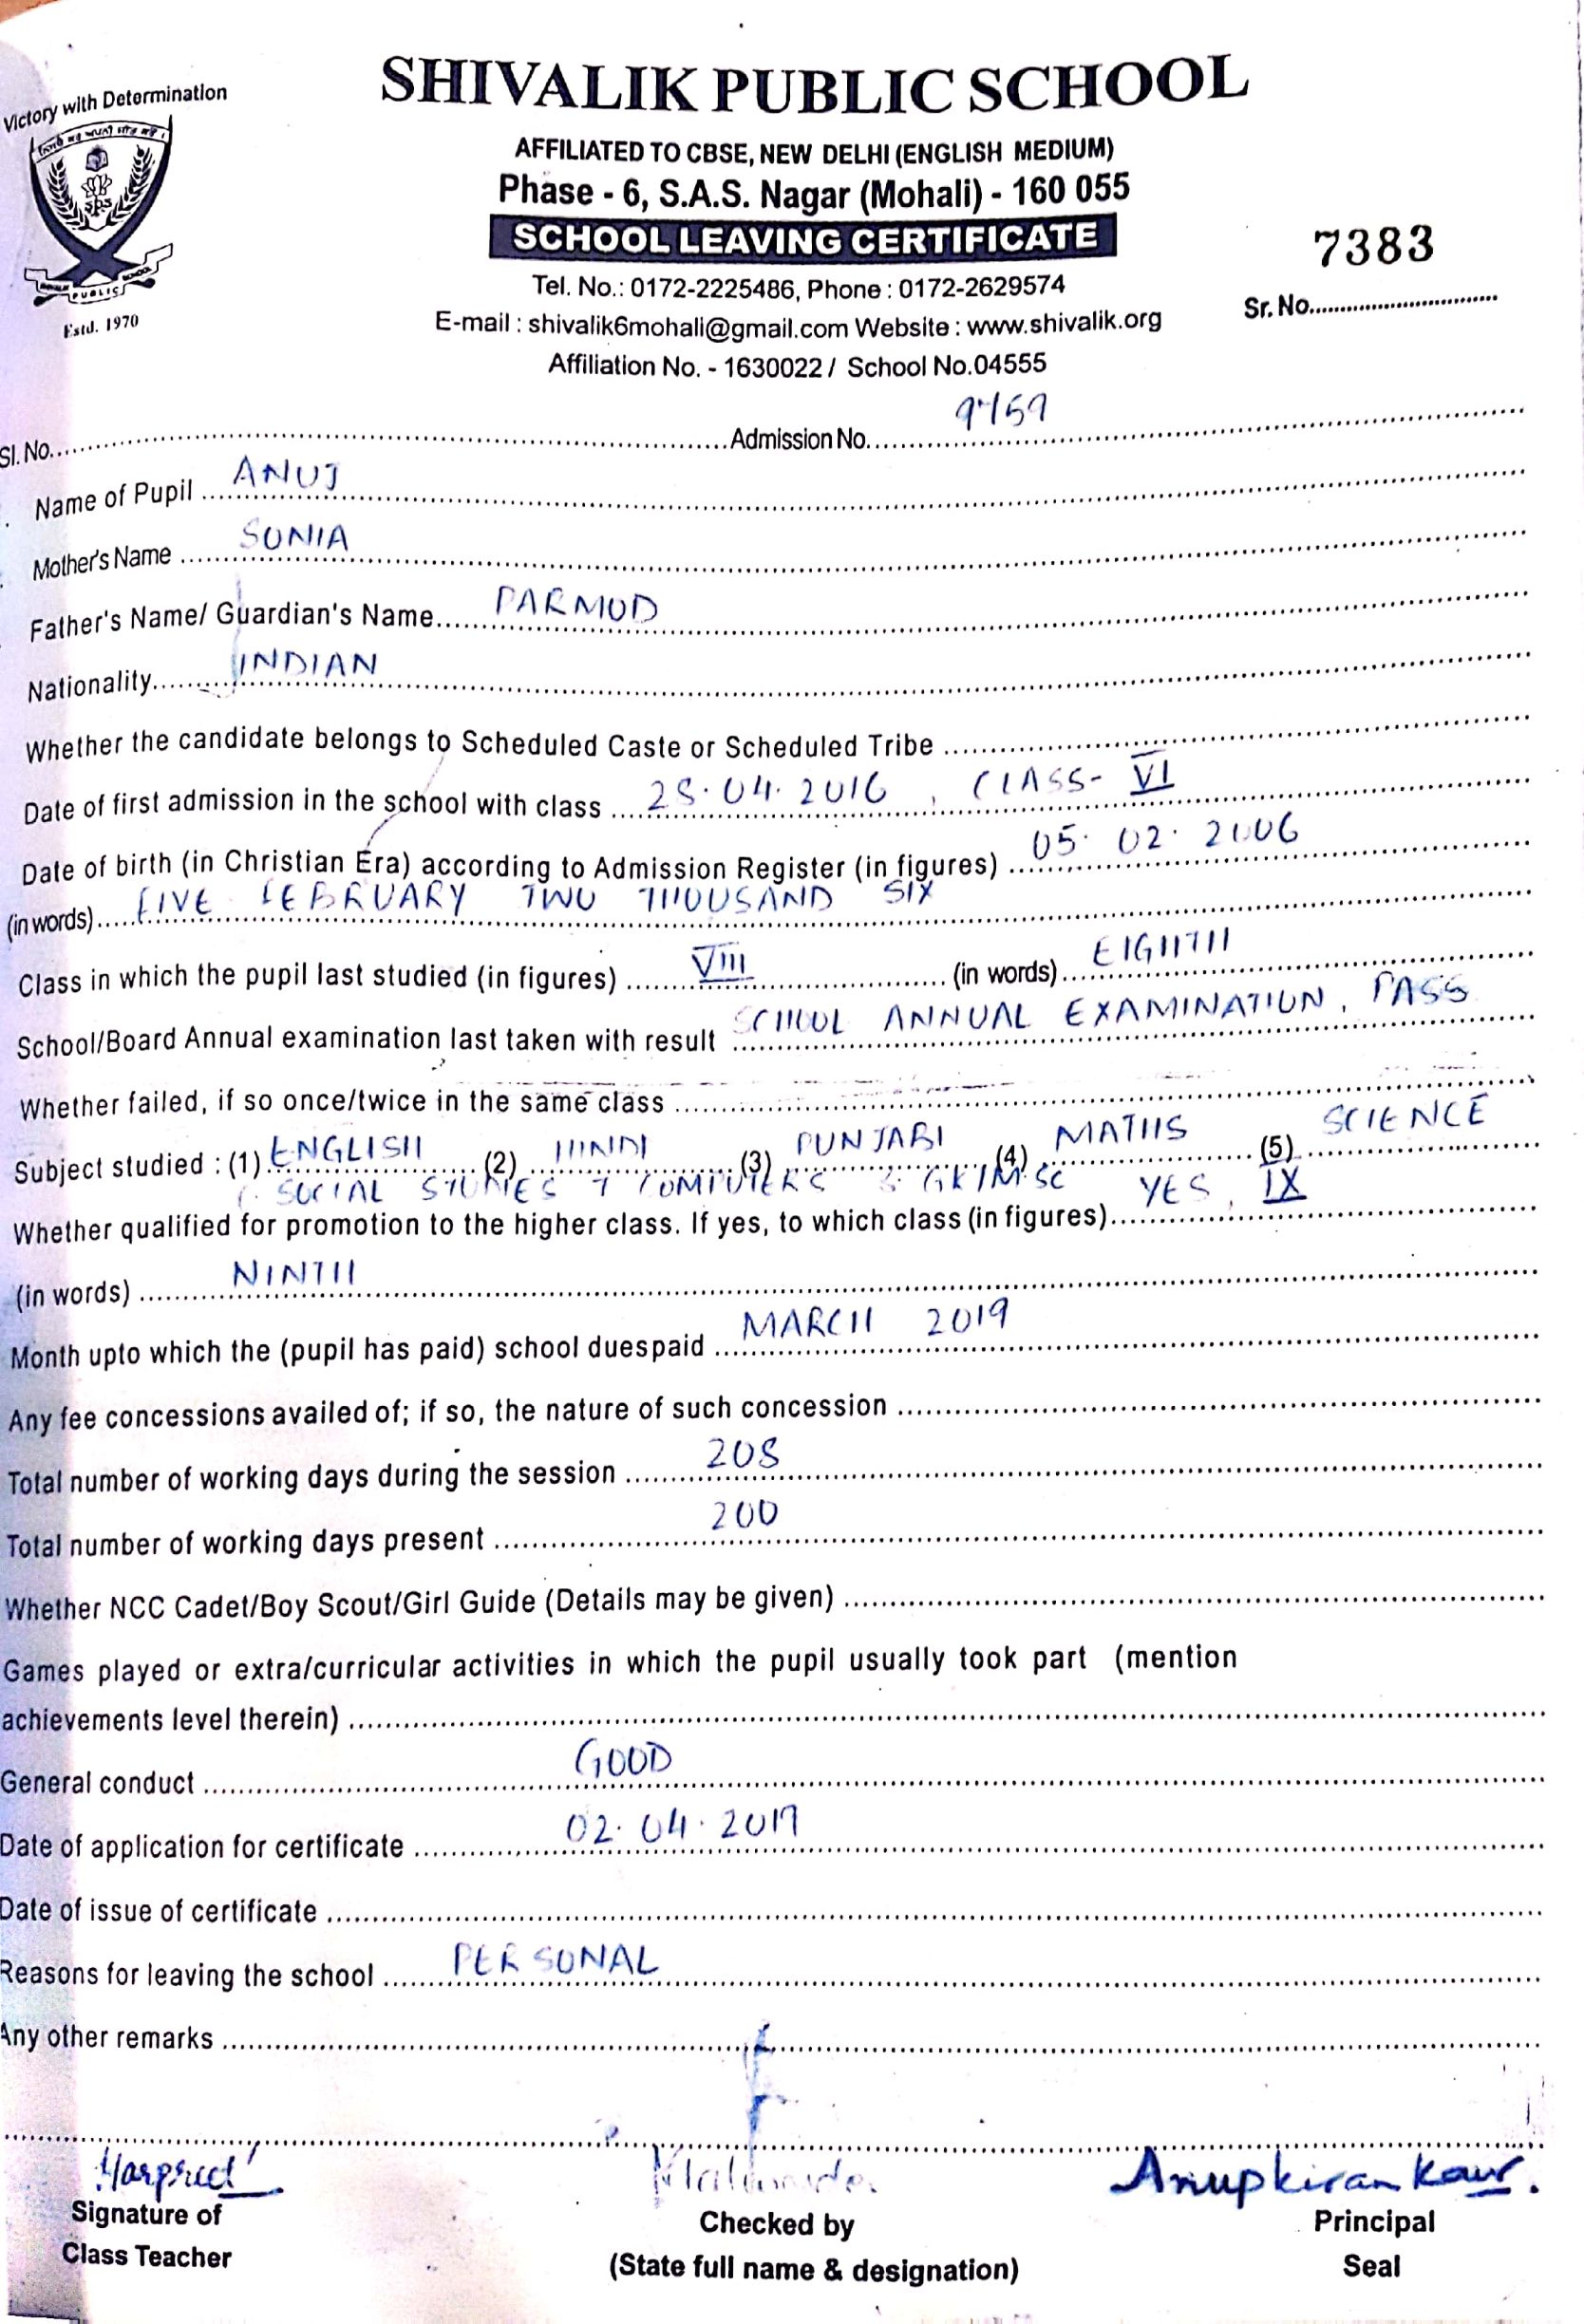 Victory with Determination
SHIVALIK PUBLIC SCHOOL
AFFILIATED TO CBSE, NEW DELHI (ENGLISH MEDIUM)
Phase - 6, S.A.S. Nagar (Mohali) - 160 055
SCHOOL LEAVING CERTIFICATE
7383
sps
PUBLIC SCHOOL
Estd. 1970
Tel. No.: 0172-2225486, Phone : 0172-2629574
Sr. No.
E-mail : shivalik6mohali@gmail.com Website : www.shivalik.org
Affiliation No. - 1630022 / School No.04555
Sl. No. Admission No.
Name of Pupil ANUJ
Mother's Name SONIA
Father's Name/ Guardian's Name PARMOD
Nationality INDIAN
Whether the candidate belongs to Scheduled Caste or Scheduled Tribe
Date of first admission in the school with class 28.04.2016, CLASS- VI
Date of birth (in Christian Era) according to Admission Register (in figures) 05.02.2006
(in words) FIVE FEBRUARY TWO THOUSAND SIX
Class in which the pupil last studied (in figures) VIII (in words) EIGHTH
School/Board Annual examination last taken with result SCHOOL ANNUAL EXAMINATION, PASS
Whether failed, if so once/twice in the same class
Subject studied : (1) ENGLISH (2) HINDI (3) PUNJABI (4) MATHS (5) SCIENCE
6. SOCIAL STUDIES 7 COMPUTERS 8. GK/M.SC
Whether qualified for promotion to the higher class. If yes, to which class (in figures) YES, IX
(in words) NINTH
Month upto which the (pupil has paid) school duespaid MARCH 2019
Any fee concessions availed of; if so, the nature of such concession
Total number of working days during the session 208
Total number of working days present 200
Whether NCC Cadet/Boy Scout/Girl Guide (Details may be given)
Games played or extra/curricular activities in which the pupil usually took part (mention
achievements level therein)
General conduct GOOD
Date of application for certificate 02.04.2019
Date of issue of certificate
Reasons for leaving the school PERSONAL
Any other remarks
Harpreet Anupkiran Kaur.
Signature of Checked by Principal
Class Teacher (State full name & designation) Seal